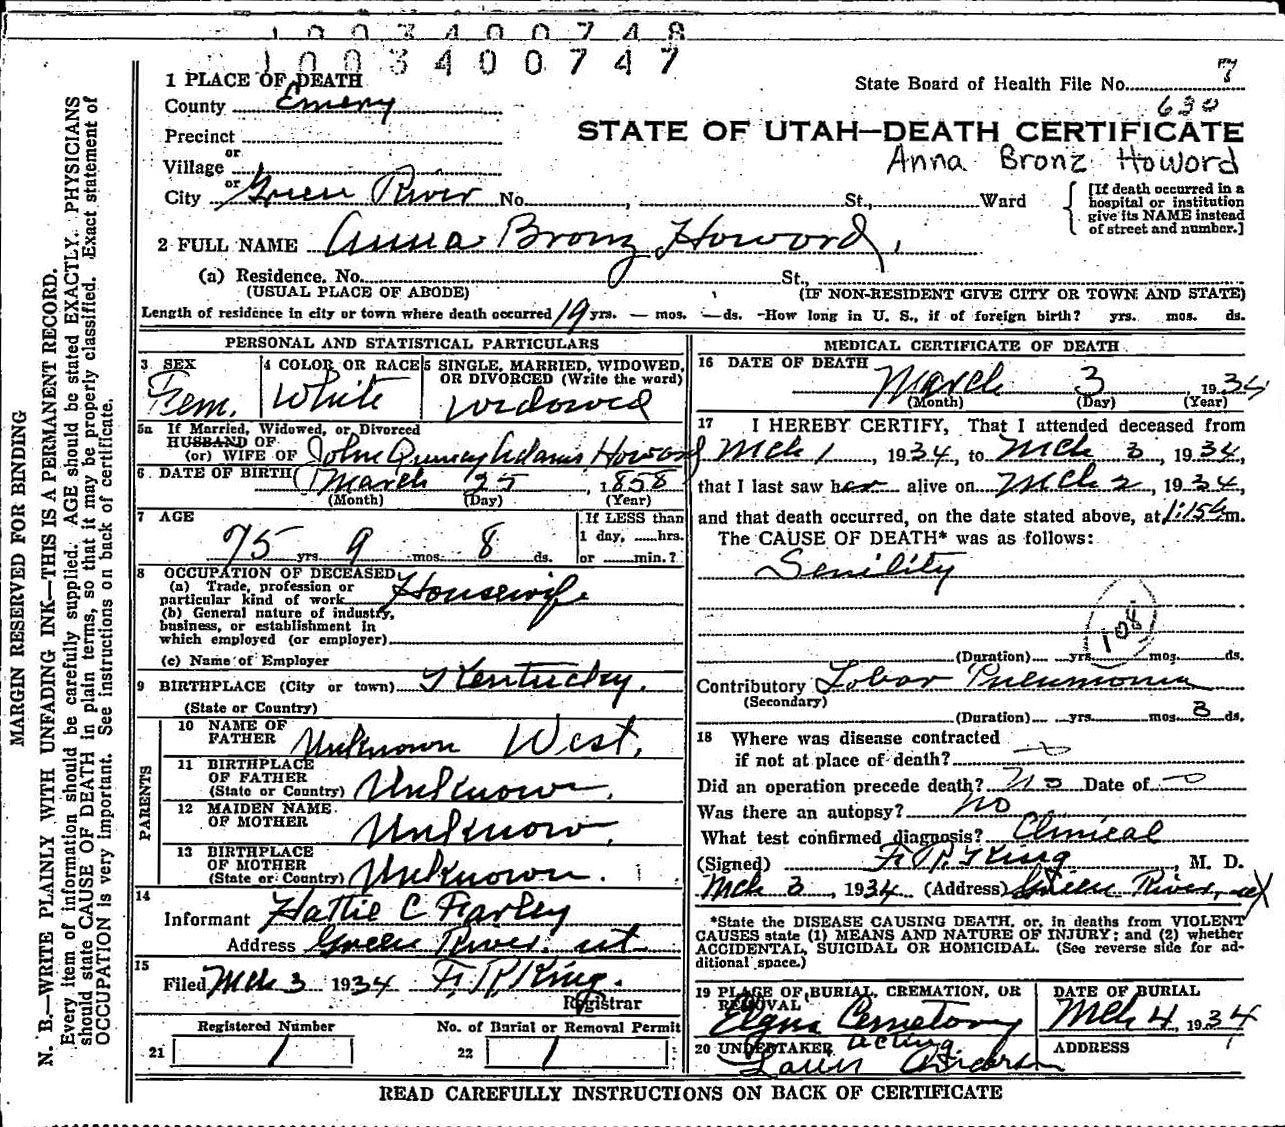 1003400748
1003400747
1 PLACE OF DEATH
State Board of Health File No. 7
County Emery
630
Precinct
STATE OF UTAH—DEATH CERTIFICATE
or
Village
Anna Bronz Howord
or
City Green River No. , St., Ward
[If death occurred in a hospital or institution give its NAME instead of street and number.]
2 FULL NAME Anna Bronz Howord,
(a) Residence. No. St.,
(USUAL PLACE OF ABODE) (IF NON-RESIDENT GIVE CITY OR TOWN AND STATE)
Length of residence in city or town where death occurred 19 yrs. — mos. — ds. -How long in U. S., if of foreign birth? yrs. mos. ds.
PERSONAL AND STATISTICAL PARTICULARS
3 SEX
Fem.
4 COLOR OR RACE
White
5 SINGLE, MARRIED, WIDOWED, OR DIVORCED (Write the word)
widowed
5a If Married, Widowed, or Divorced
HUSBAND OF
(or) WIFE OF John Quincy Adams Howord
6 DATE OF BIRTH March 25, 1858
(Month) (Day) (Year)
7 AGE
75 yrs. 9 mos. 8 ds.
If LESS than
1 day, ......hrs.
or ......min.?
8 OCCUPATION OF DECEASED
(a) Trade, profession or
particular kind of work Housewife
(b) General nature of industry,
business, or establishment in
which employed (or employer)
(c) Name of Employer
9 BIRTHPLACE (City or town) Kentucky.
(State or Country)
PARENTS
10 NAME OF
FATHER Unknown West,
11 BIRTHPLACE
OF FATHER
(State or Country) Unknown.
12 MAIDEN NAME
OF MOTHER Unknow,
13 BIRTHPLACE
OF MOTHER
(State or Country) Unknown.
14
Informant Hattie C Farley
Address Green River. ut
15
Filed Mch 3 1934 F. R. King.
Registrar
Registered Number No. of Burial or Removal Permit
21 1 22 1
MEDICAL CERTIFICATE OF DEATH
16 DATE OF DEATH
March 3 1934
(Month) (Day) (Year)
17 I HEREBY CERTIFY, That I attended deceased from
Mch 1, 1934, to Mch 3, 1934,
that I last saw her alive on Mch 2, 1934,
and that death occurred, on the date stated above, at 1:15a m.
The CAUSE OF DEATH* was as follows:
Senility
108
(Duration) yrs. mos. ds.
Contributory Lobar Pneumonia
(Secondary)
(Duration) yrs. mos. 3 ds.
18 Where was disease contracted
if not at place of death? 0
Did an operation precede death? no Date of 0
Was there an autopsy? no
What test confirmed diagnosis? Clinical
(Signed) F. R. King, M. D.
Mch 3, 1934 (Address) Green River, ut
*State the DISEASE CAUSING DEATH, or, in deaths from VIOLENT
CAUSES state (1) MEANS AND NATURE OF INJURY; and (2) whether
ACCIDENTAL, SUICIDAL OR HOMICIDAL. (See reverse side for ad-
ditional space.)
19 PLACE OF BURIAL, CREMATION, OR
REMOVAL
Elgin Cemetory
DATE OF BURIAL
Mch 4, 1934
20 UNDERTAKER acting
Loren Anderson
ADDRESS
READ CAREFULLY INSTRUCTIONS ON BACK OF CERTIFICATE
MARGIN RESERVED FOR BINDING
N. B.—WRITE PLAINLY WITH UNFADING INK—THIS IS A PERMANENT RECORD.
Every item of information should be carefully supplied. AGE should be stated EXACTLY. PHYSICIANS
should state CAUSE OF DEATH in plain terms, so that it may be properly classified. Exact statement of
OCCUPATION is very important. See instructions on back of certificate.